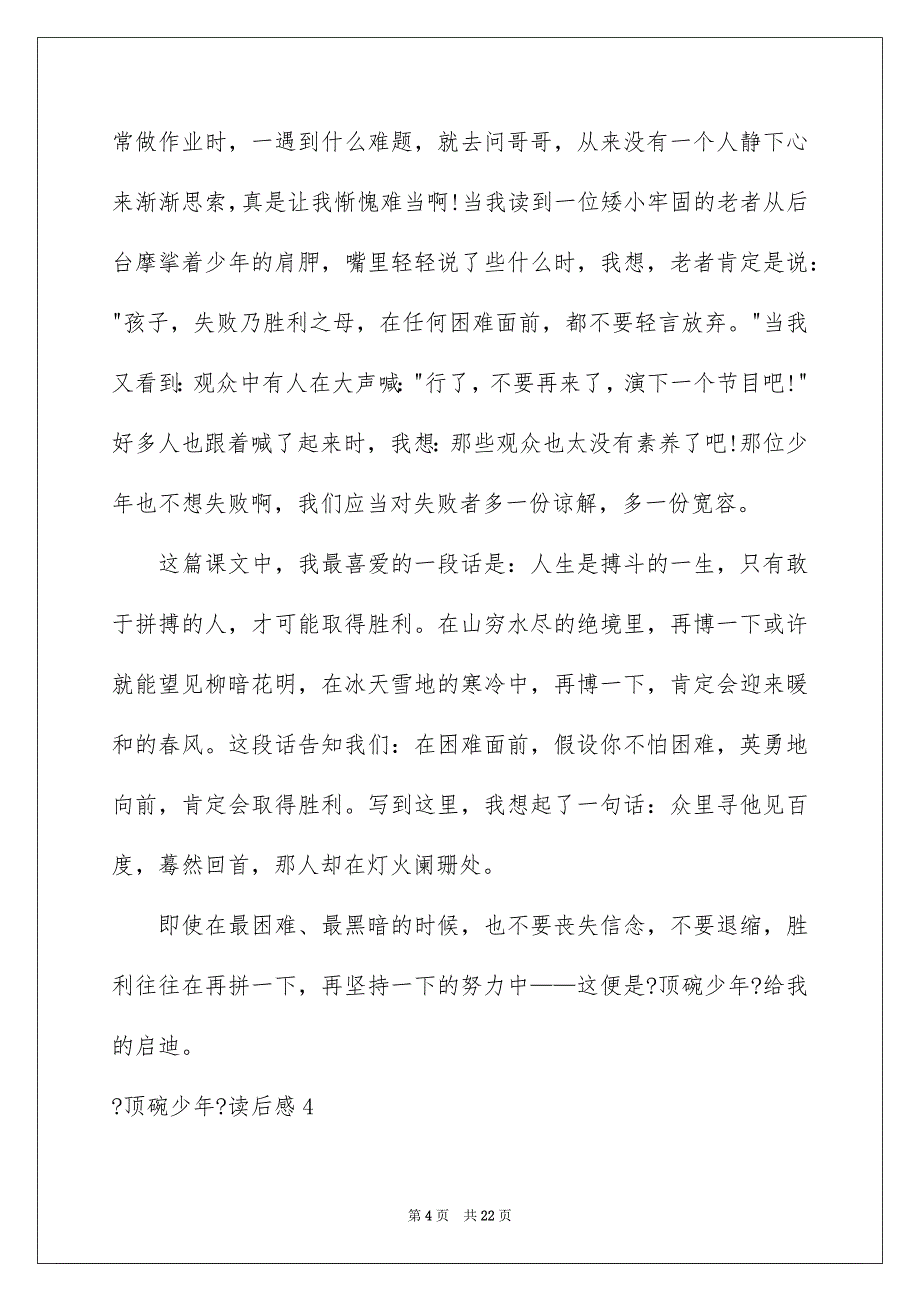 常做作业时，一遇到什么难题，就去问哥哥，从来没有一个人静下心
来渐渐思索，真是让我惭愧难当啊!当我读到一位矮小牢固的老者从后
台摩挲着少年的肩胛，嘴里轻轻说了些什么时，我想，老者肯定是说：
"孩子，失败乃胜利之母，在任何困难面前，都不要轻言放弃。"当我
又看到：观众中有人在大声喊："行了，不要再来了，演下一个节目吧!"
好多人也跟着喊了起来时，我想：那些观众也太没有素养了吧!那位少
年也不想失败啊，我们应当对失败者多一份谅解，多一份宽容。
这篇课文中，我最喜爱的一段话是：人生是搏斗的一生，只有敢
于拼搏的人，才可能取得胜利。在山穷水尽的绝境里，再博一下或许
就能望见柳暗花明，在冰天雪地的寒冷中，再博一下，肯定会迎来暖
和的春风。这段话告知我们：在困难面前，假设你不怕困难，英勇地
向前，肯定会取得胜利。写到这里，我想起了一句话：众里寻他见百
度，蓦然回首，那人却在灯火阑珊处。
即使在最困难、最黑暗的时候，也不要丧失信念，不要退缩，胜
利往往在再拼一下，再坚持一下的努力中——这便是?顶碗少年?给我
的启迪。
?顶碗少年?读后感 4
第 4 页 共 22 页